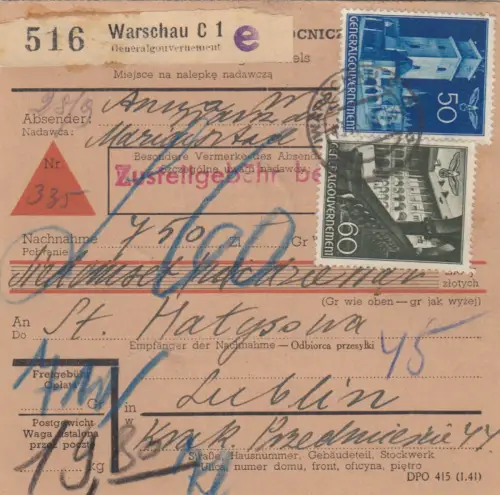 516 Warschau C 1
Generalgouvernement e
Miejsce na nalepkę nadawczą
50
GENERALGOUVERNEMENT
Absender:
Nadawca:
Anna
Besondere Vermerke des Absend
Szczególne uwagi nadawcy
Zustellgebühr be
Nr
335
60
GENERALGOUVERNEMENT
Nachnahme 750 Zł Gr
Pobranie
złotych
(Gr wie oben—gr jak wyżej)
An
Do
St. Matysowa
Empfänger der Nachnahme—Odbiorca przesyłki
45
Freigebühr
Opłata
Gr
in
w
Lublin
Postgewicht
Waga ustalona
przez pocztę
kg
Krak. Przedmieście 44
Straße, Hausnummer, Gebäudeteil, Stockwerk
Ulica, numer domu, front, oficyna, piętro
DPO 415 (1.41)